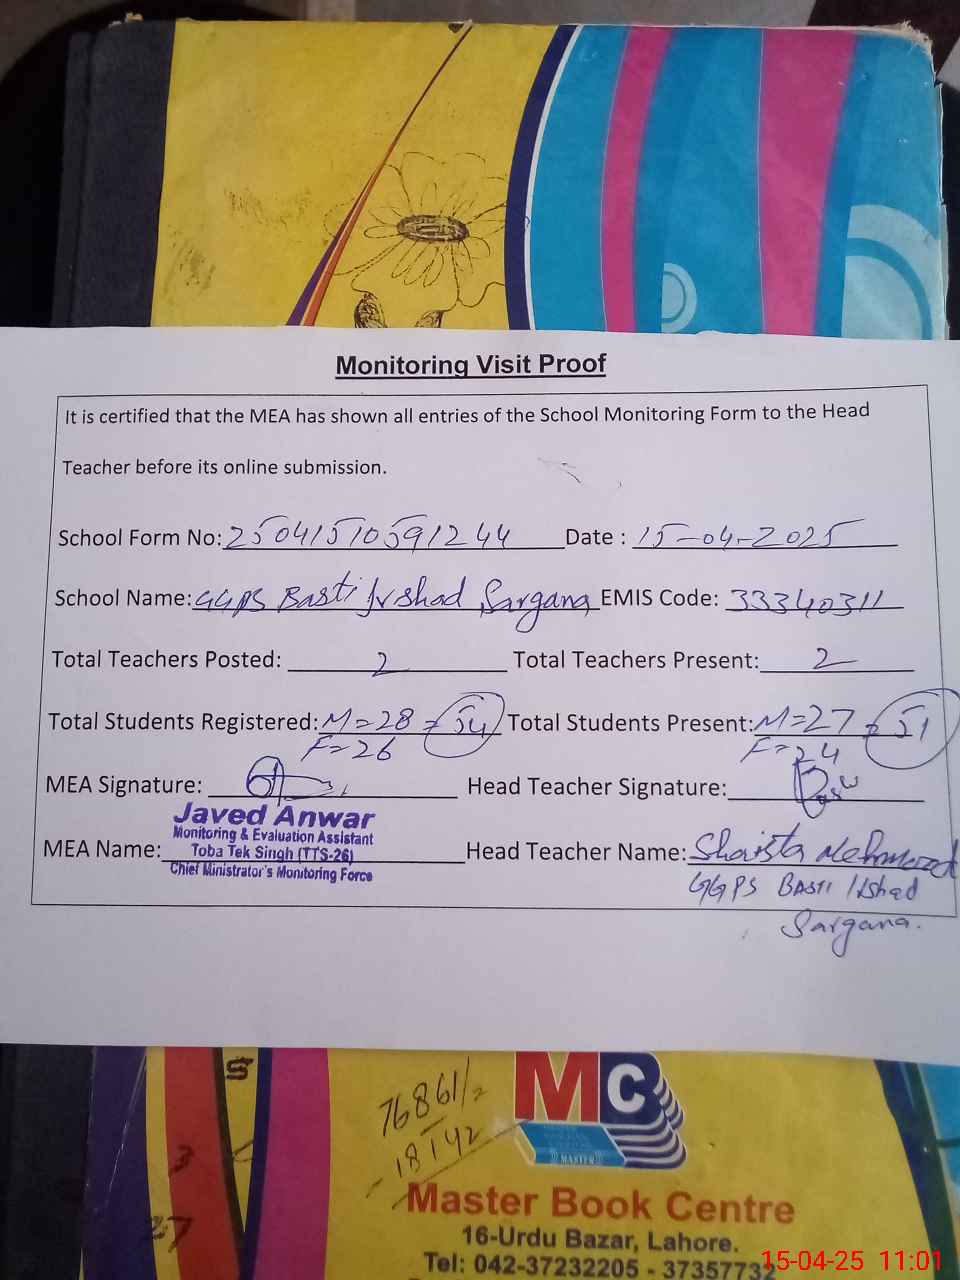 Monitoring Visit Proof
It is certified that the MEA has shown all entries of the School Monitoring Form to the Head
Teacher before its online submission.
School Form No: 25041510591244 Date : 15-04-2025
School Name: GGPS Basti Irshad Sargana EMIS Code: 33340311
Total Teachers Posted: 2 Total Teachers Present: 2
Total Students Registered: M=28 = 54 Total Students Present: M=27 = 51
F=26 F=24
MEA Signature: Head Teacher Signature:
Javed Anwar
Monitoring & Evaluation Assistant
MEA Name: Toba Tek Singh (TTS-26) Head Teacher Name: Shaista Mehmood
Chief Ministrator's Monitoring Force
GGPS Basti Irshad
Sargana.
S
3
27
76861/2
-18142
MC
MASTER
Master Book Centre
16-Urdu Bazar, Lahore.
Tel: 042-37232205 - 3735773
15-04-25 11:01